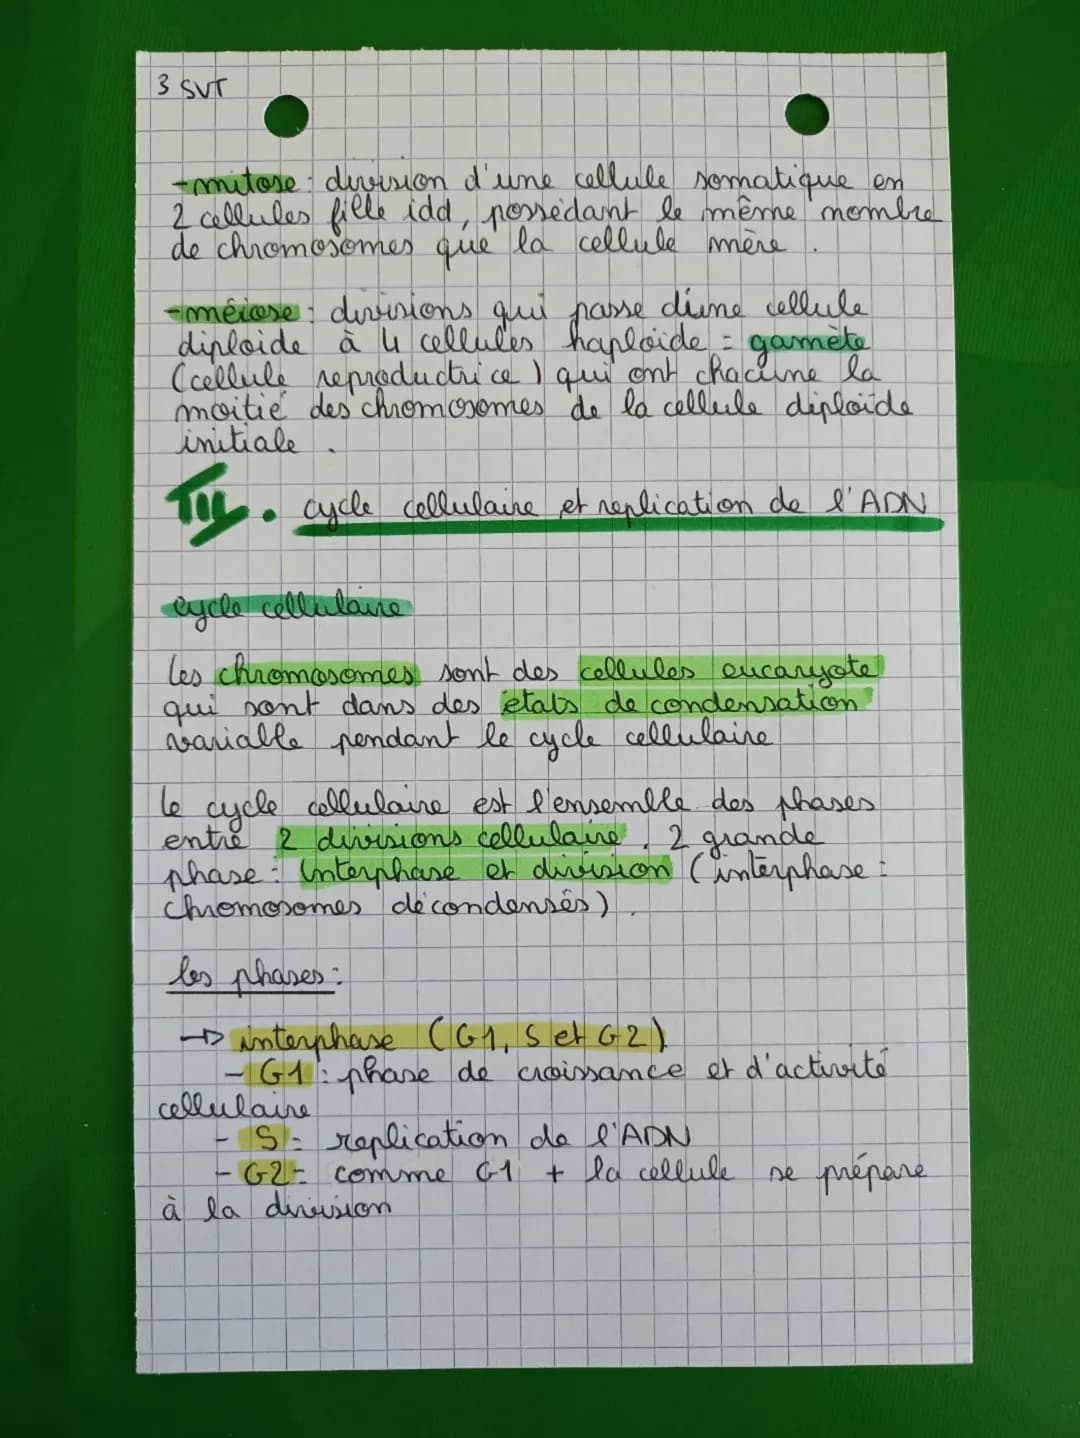 3 SVT
-mitose : division d'une cellule somatique en
2 cellules fille idd, possédant le même nombre
de chromosomes que la cellule mère .
-méiose : divisions qui passe d'une cellule
diploide à 4 cellules haploïde = gamète
(cellule reproductrice) qui ont chacune la
moitié des chromosomes de la cellule diploïde
initiale .
III. cycle cellulaire et replication de l'ADN
cycle cellulaire
les chromosomes sont des cellules eucaryote
qui sont dans des états de condensation
variable pendant le cycle cellulaire
le cycle cellulaire est l'ensemble des phases
entre 2 divisions cellulaire . 2 grande
phase : interphase et division (interphase :
chromosomes décondensés) .
les phases :
→ interphase (G1, S et G2)
- G1 : phase de croissance et d'activité
cellulaire
- S = replication de l'ADN
- G2 = comme G1 + la cellule se prépare
à la division